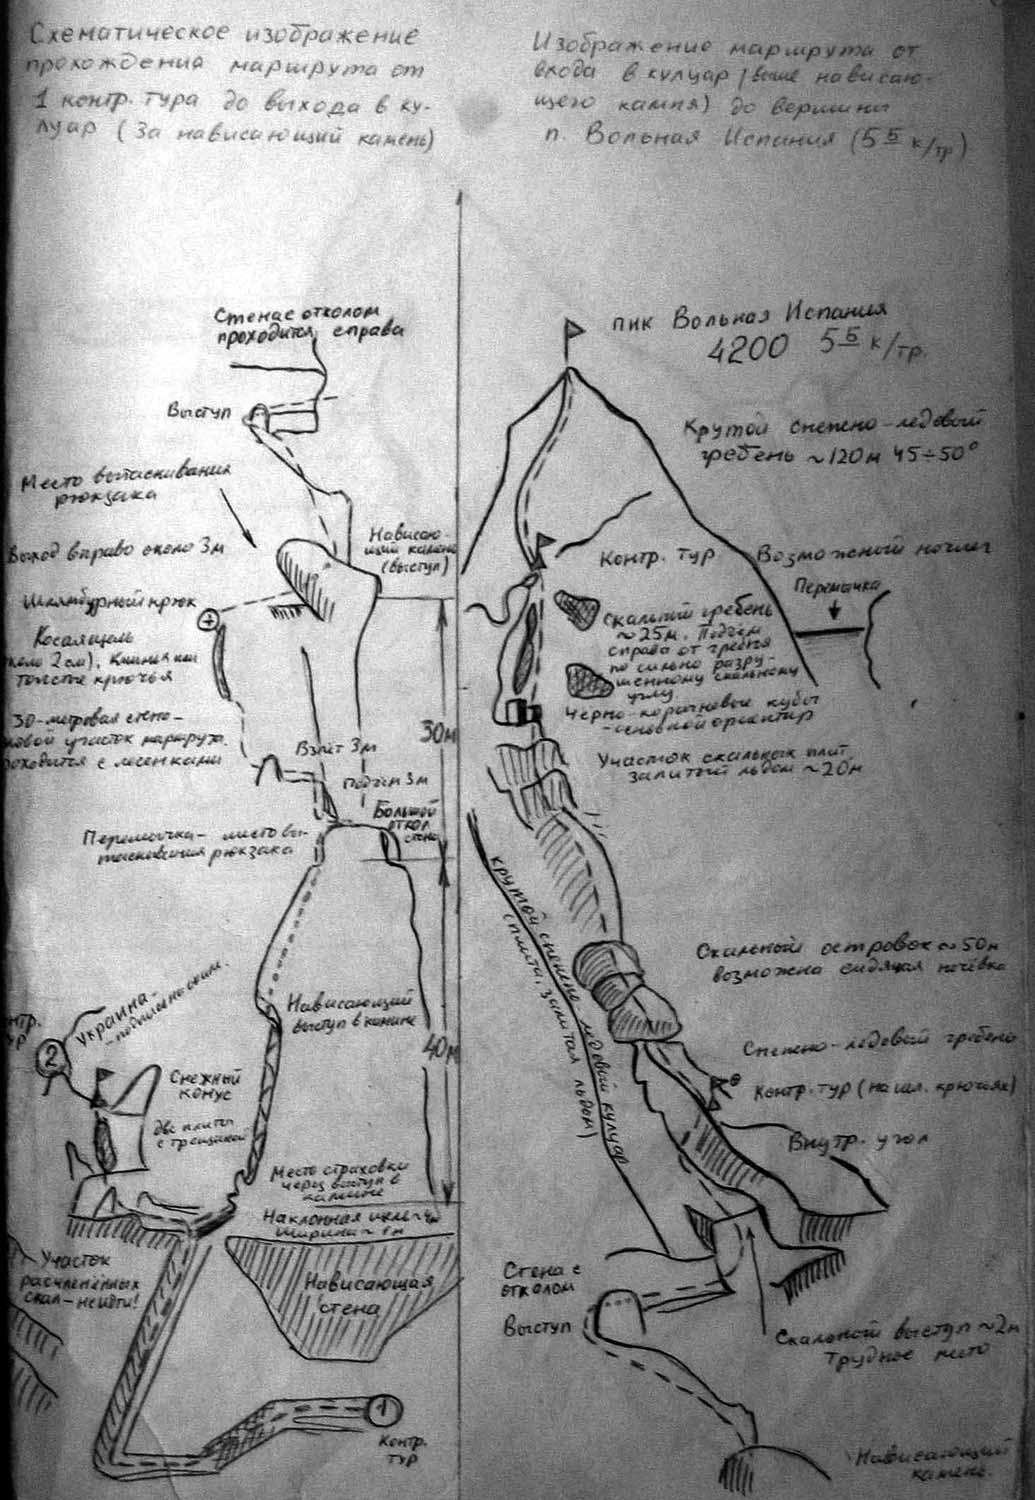 Схематическое изображение
прохождения маршрута от
1 контр. тура до выхода в ку-
луар (за нависающий камень)
Стена с отколом
проходится справа
Выступ
Место вытаскивания
рюкзака
Выход вправо около 3м
Нависаю-
щий камень
(выступ)
Шлямбурный крюк
Косая щель
около 2см). Клинья или
толстые крючья
30-метровая стено-
вой участок маршрута.
проходится с лесенками
30м
Взлёт 3м
Подъём 3м
Большой
откол
стены
Перемычка - место вы-
таскивания рюкзака
Украина-
Нависающий
выступ в камине
40м
контр.
тур
2
Снежный
конус
две плиты
с трещиной
Место страховки
через выступ в
камине
Наклонная щель ~4м
ширина ~ 1м
Участок
расчленённых
скал - не идти!
Нависающая
стена
1
Контр.
тур
Изображение маршрута от
входа в кулуар (выше нависаю-
щего камня) до вершины
п. Вольная Испания (5 Б к/тр)
пик Вольная Испания
4200 5 Б к/тр.
Крутой снежно-ледовый
гребень ~120м 45÷50°
Контр. тур
Возможный ночлег
Перемычка
Скальный гребень
~25м. Подъём
справа от гребня
по сильно разру-
шенному скальному
углу
Черно-коричневые кубы
- основной ориентир
Участок скальных плит
залитый льдом ~20м
крутой снежно ледовый кулуар
(плита, залитая льдом)
Скальный островок ~50м
возможна сидячая ночёвка
Снежно-ледовый гребень
Контр. тур (на шл. крючьях)
Внутр. угол
Стена с
отколом
Выступ
Скальный выступ ~2м
Трудное место
Нависающий
камень.